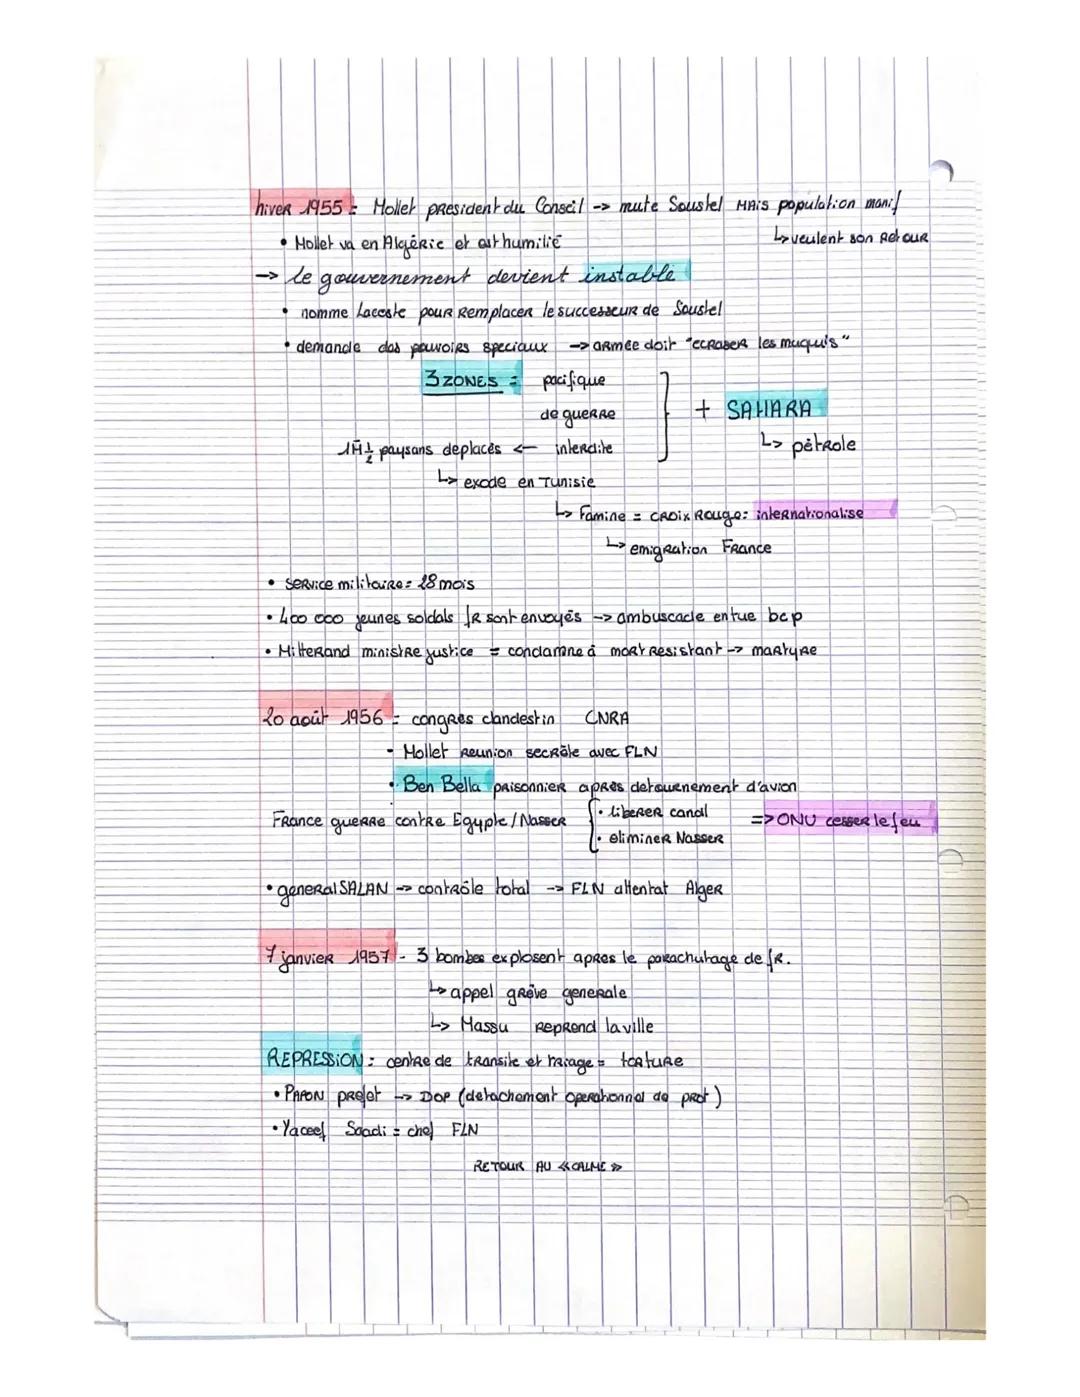 hiver 1955 = Mollet president du Conseil -> mute Soustel MAIS population manif
↳ veulent son retour
• Mollet va en Algérie et est humilié
-> le gouvernement devient instable
• nomme Lacoste pour remplacer le successeur de Soustel
• demande das pouvoirs speciaux -> armée doit "ecraser les maquis"
3 ZONES = pacifique
de guerre
+ SAHARA
1M 1/2 paysans deplacés <- interdite
↳ pétrole
↳ exode en Tunisie
↳ Famine = CROIX Rouge: internationalise
↳ emigration France
• service militaire = 28 mois
• 400 000 jeunes soldats fr sont envoyés -> ambuscade en tue bcp
• Mitterand ministre justice = condamne à mort resistant -> martyre
20 août 1956 = congrès clandestin CNRA
- Mollet reunion secrète avec FLN
• Ben Bella prisonnier apres detournement d'avion
France guerre contre Egypte / Nasser { • liberer canal
• eliminer Nasser
=> ONU cesser le feu
• general SALAN -> contrôle total -> FLN attentat Alger
7 janvier 1957 - 3 bombes explosent apres le parachutage de fr.
↳ appel grève generale
↳ Massu reprend la ville
REPRESSION : centre de transite et triage = torture
• PAPON prefet -> DOP (detachement operationnal de prot)
• Yaceef Saadi = chef FLN
RETOUR AU «CALME»